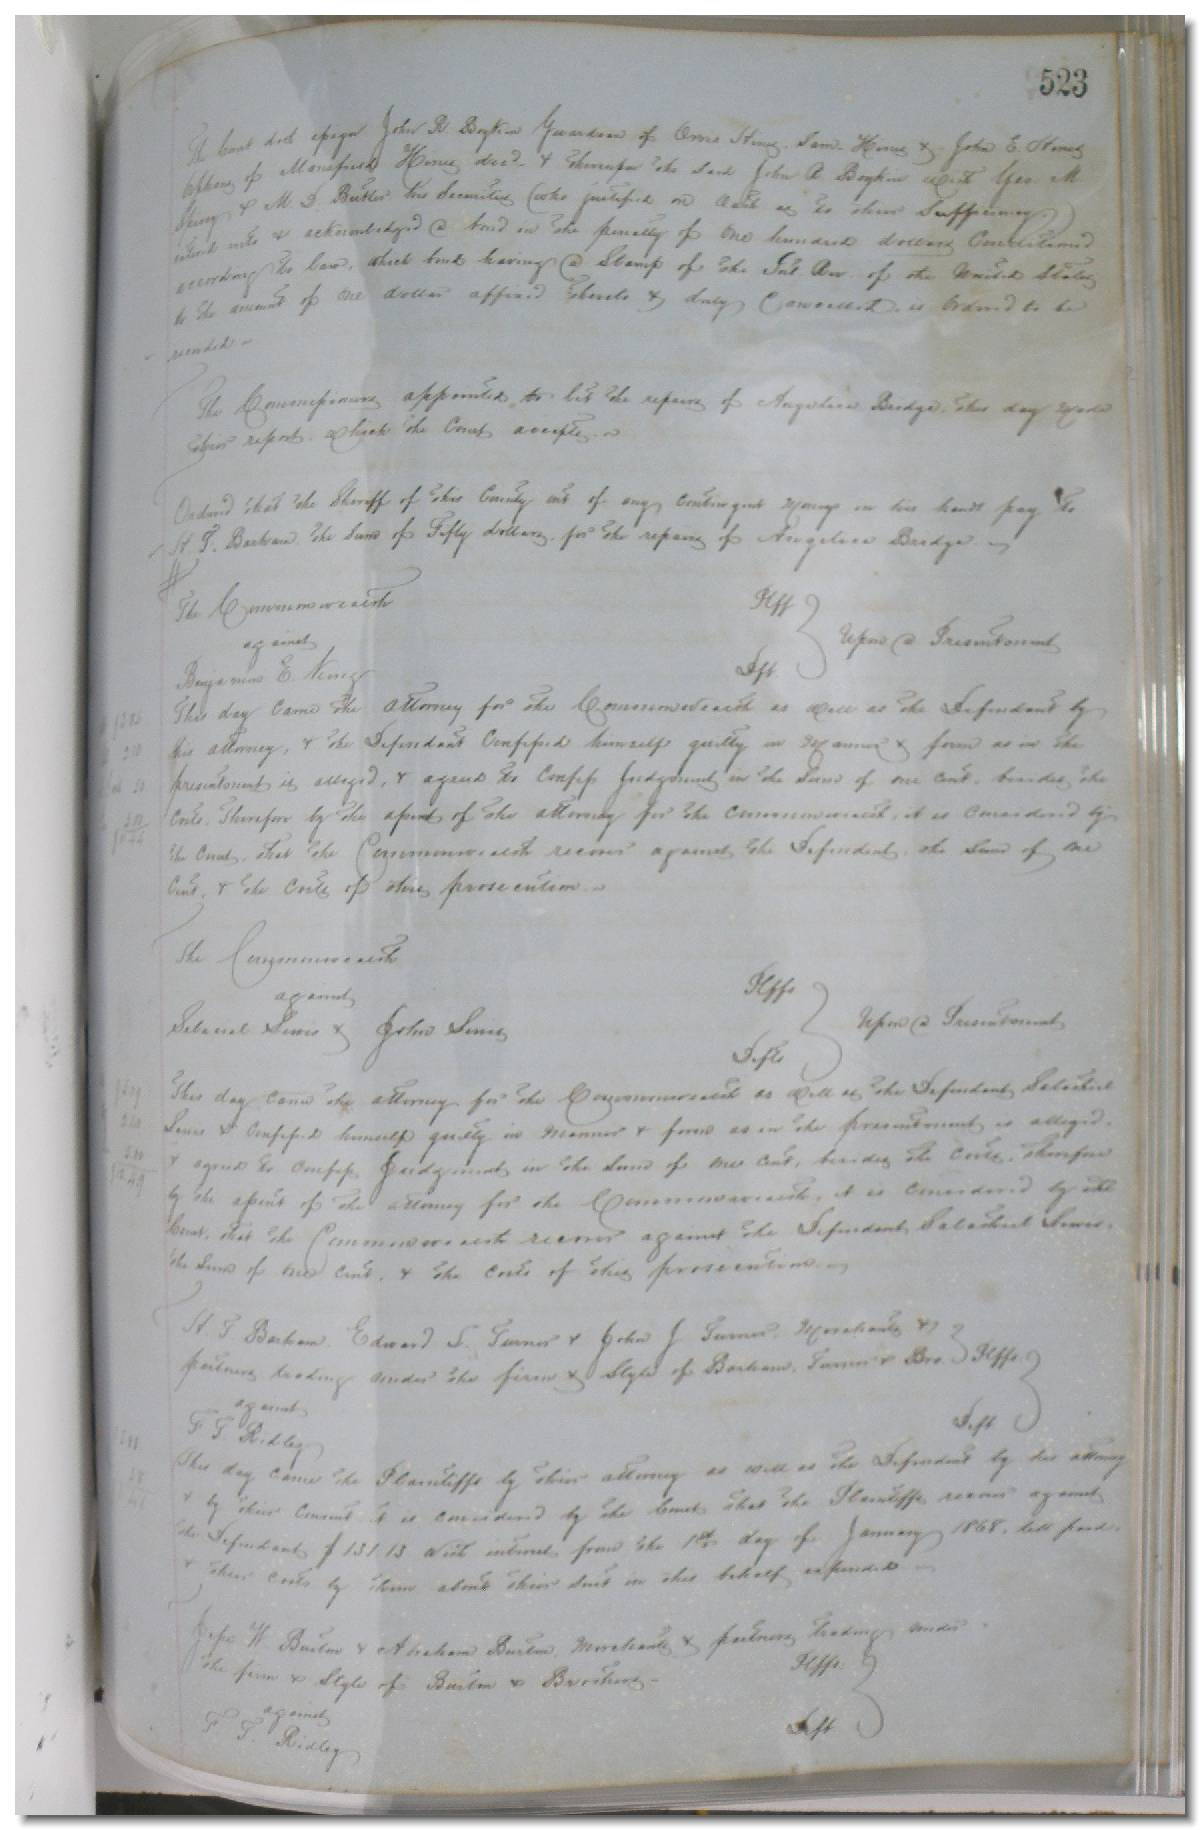 523
The Court doth appoint John R. Boykin Guardian of Hines, Sam Hines & John E. Hines
orphans of Mansfield Hines decd. & thereupon the said John R Boykin with Geo. M
& M. D. Butler his Securities (who justified on oath as to their Sufficiency)
entered into & acknowledged a bond in the penalty of One hundred dollars Conditioned
according to law, which bond having a Stamp of the Int. Rev. of the United States
to the amount of one dollar affixed thereto & duly Cancelled, is Ordered to be
recorded
The Commissioners appointed to let the repairs of Angelica Bridge, this day made
their report, which the Court accepts.
Ordered that the Sheriff of this County out of any contingent money in his hands pay to
H. T. Barham the Sum of Fifty dollars, for the repairs of Angelica Bridge.
The Commonwealth Plff
against Upon a Presentment
Benjamin E. Deft
This day came the attorney for the Commonwealth as well as the Defendant by
his attorney, & the Defendant Confessed himself guilty in Manner & form as in the
presentment is alleged, & agreed to Confess Judgment in the Sum of one Cent, besides the
Costs. Therefore by the assent of the attorney for the Commonwealth, it is considered by
the Court, that the Commonwealth recover against the Defendant, the Sum of one
Cent, & the Costs of this prosecution.
The Commonwealth Plffs
against Upon a Presentment
Salathiel Lewis & John Lewis Defts
This day came the attorney for the Commonwealth as well as the Defendant Salathiel
Lewis & Confessed himself guilty in Manner & form as in the presentment is alleged,
& agreed to confess Judgment in the Sum of one Cent, besides the Costs, Therefore
by the assent of the attorney for the Commonwealth, it is considered by the
Court, that the Commonwealth recover against the Defendant, Salathiel Lewis,
the Sum of one Cent, & the costs of this prosecution.
H. T. Barham, Edward S. Turner & John J Turner, Merchants &
partners trading under the firm & Style of Barham, Turner & Bro. Plffs
against Deft
F. T. Ridley
This day came the Plaintiffs by their attorney as well as the Defendant by his attorney
& by their Consent it is considered by the Court that the Plaintiffs recover against
the Defendant $131.13 with interest from the 1st day of January 1868, till paid.
& their costs by them about their Suit in this behalf expended
W. Barham & Abraham Merchants & partners trading under
the firm & Style of & Brothers Plffs.
against Deft
F. T. Ridley